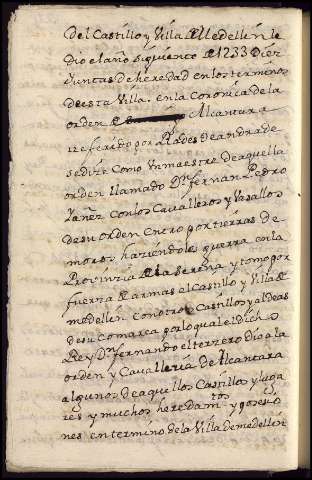 Del Castillo y Villa de Medellin le
dio el año siguiente de 1233 Diez
Juntas de heredad en los terminos
de esta Villa. en la Coronica de la
orden de Alcantara
referido por Rades de andrade
se dize Como Un maestre de aquella
orden llamado Dn. fernan Pedro
Yañez con los Cavalleros y Vasallos
de su orden entro por tierras de
moros haziendoles guerra con la
Provinzia de la Serena y tomo por
fuerza de armas el Castillo y Villa de
medellin con otros Castillos y aldeas
de su Comarca por lo qual el dicho
Rey Dn. fernando el terzero dio a la
orden y Cavalleria de Alcantara
algunos de aquellos Castillos y luga
res y muchos heredamtos. y posesio
nes en termino de la Villa de medellin